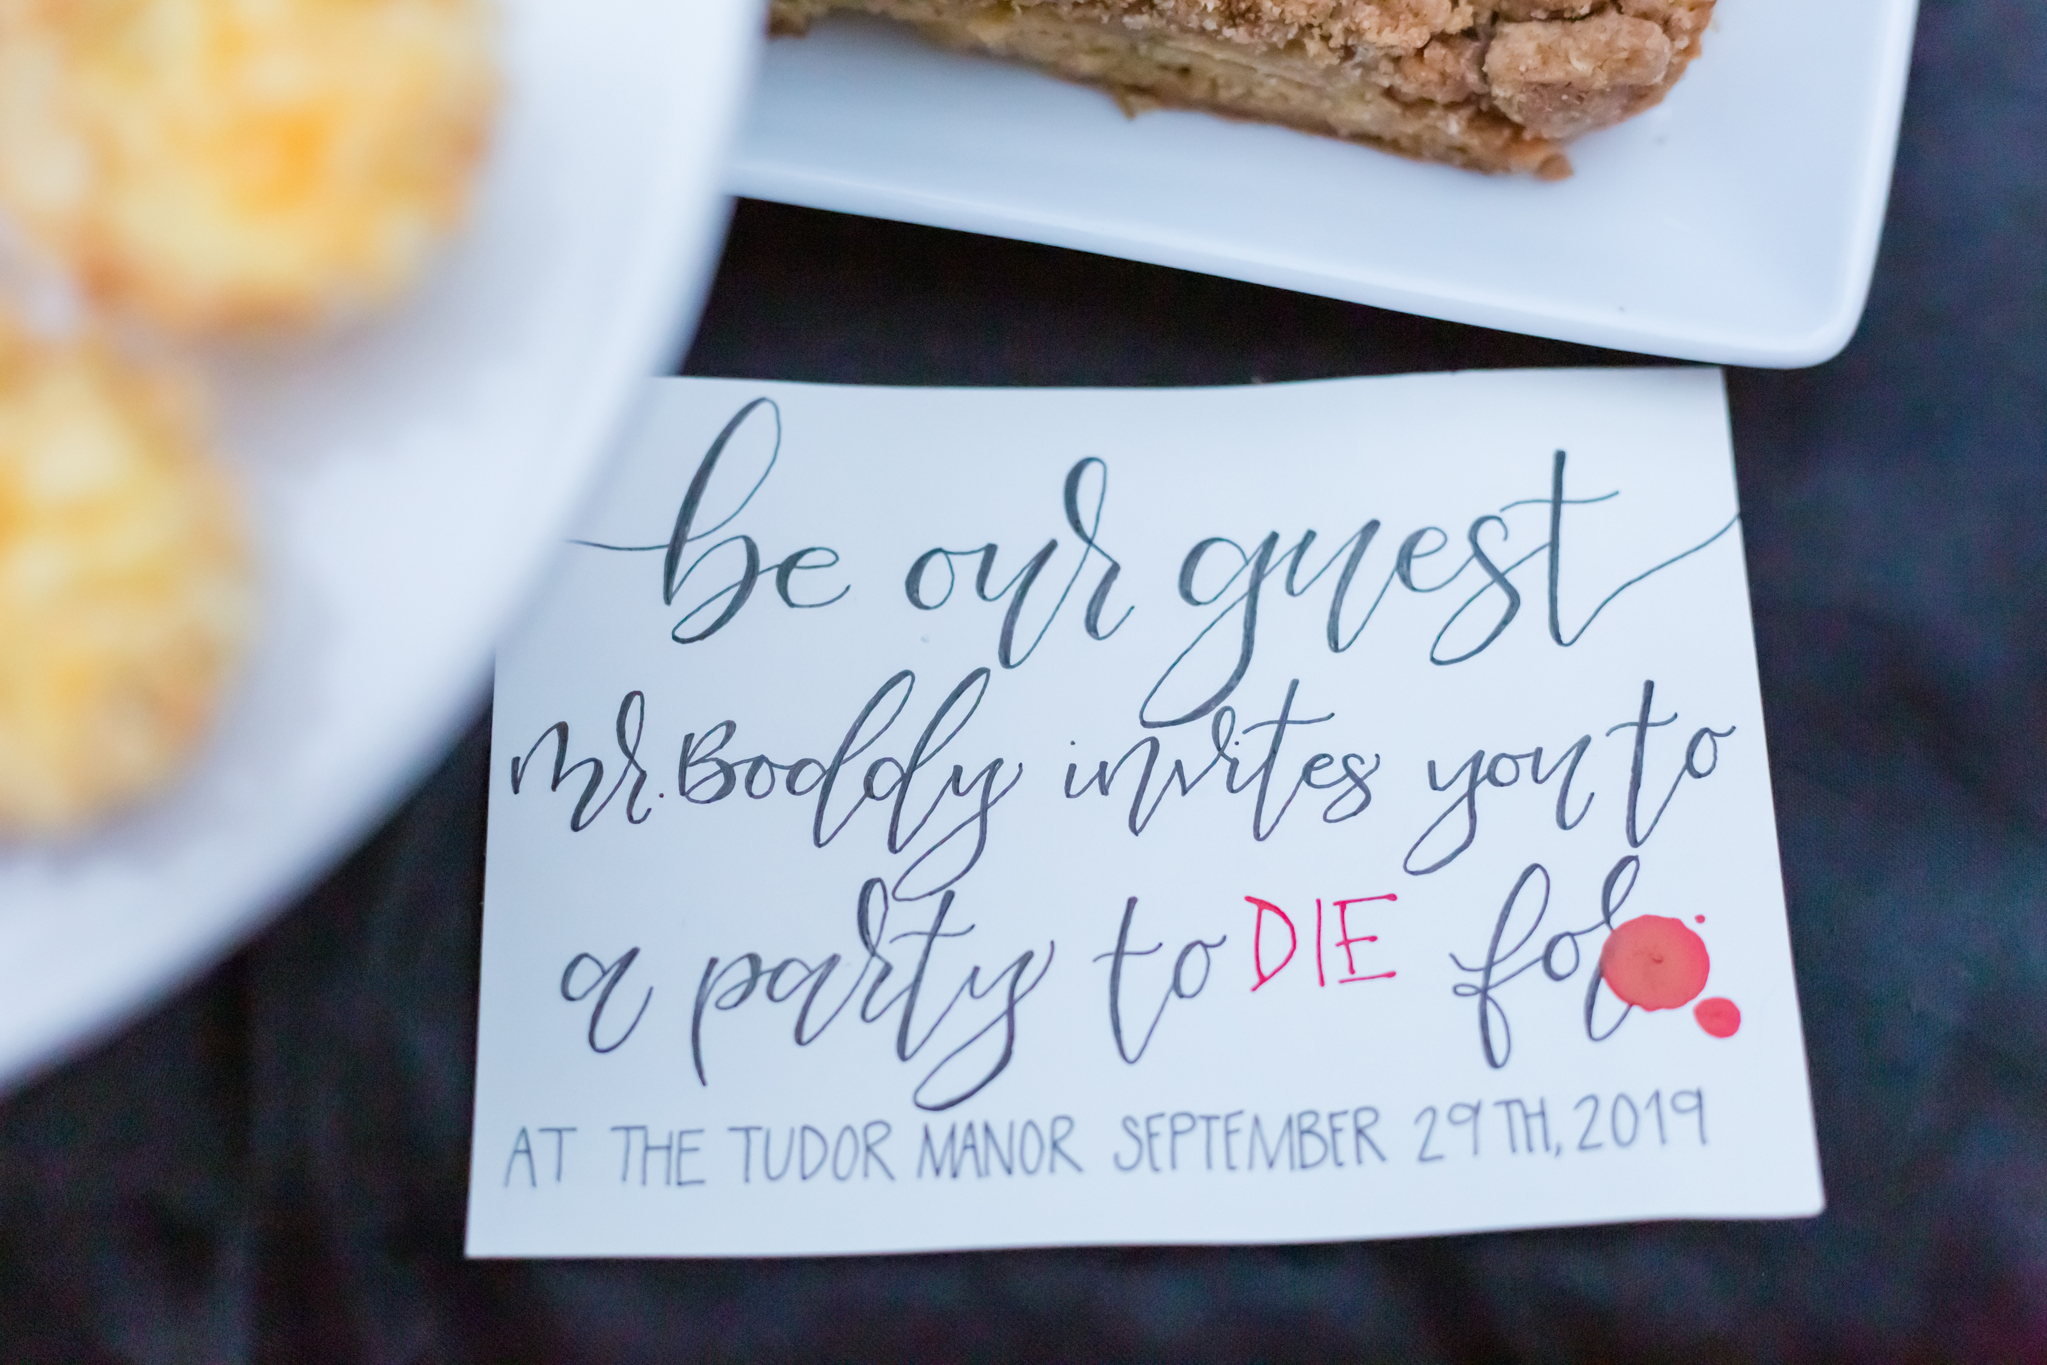 be our guest
Mr. Boddy invites you to
a party to DIE for
AT THE TUDOR MANOR SEPTEMBER 29TH, 2019